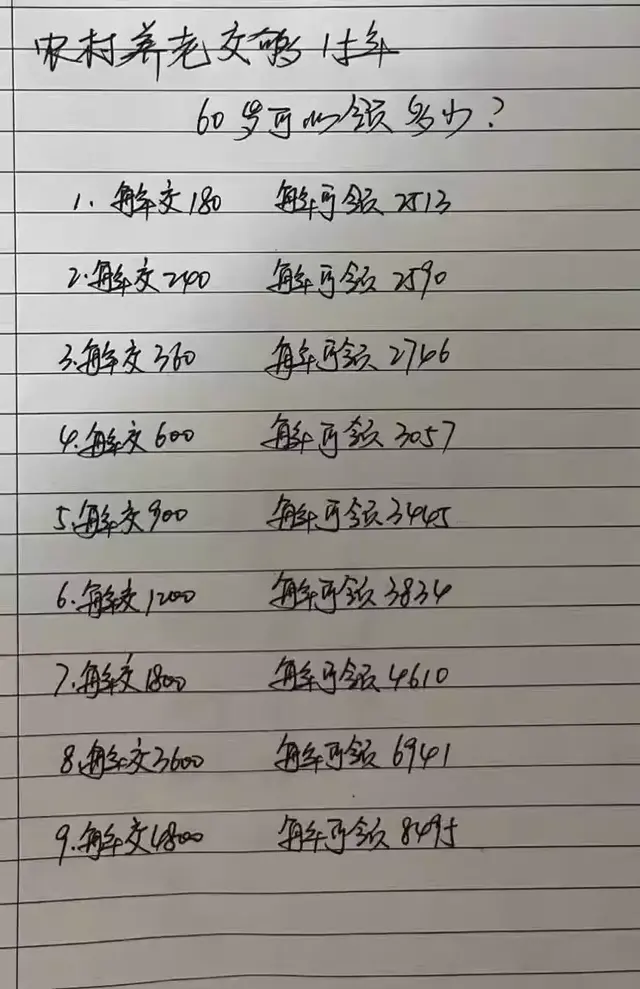 农村养老交够15年
60岁可以领多少?
1. 每年交180 每年可领2513
2. 每年交240 每年可领2590
3. 每年交360 每年可领2746
4. 每年交600 每年可领3057
5. 每年交900 每年可领3445
6. 每年交1200 每年可领3834
7. 每年交1800 每年可领4610
8. 每年交3600 每年可领6941
9. 每年交4800 每年可领8495